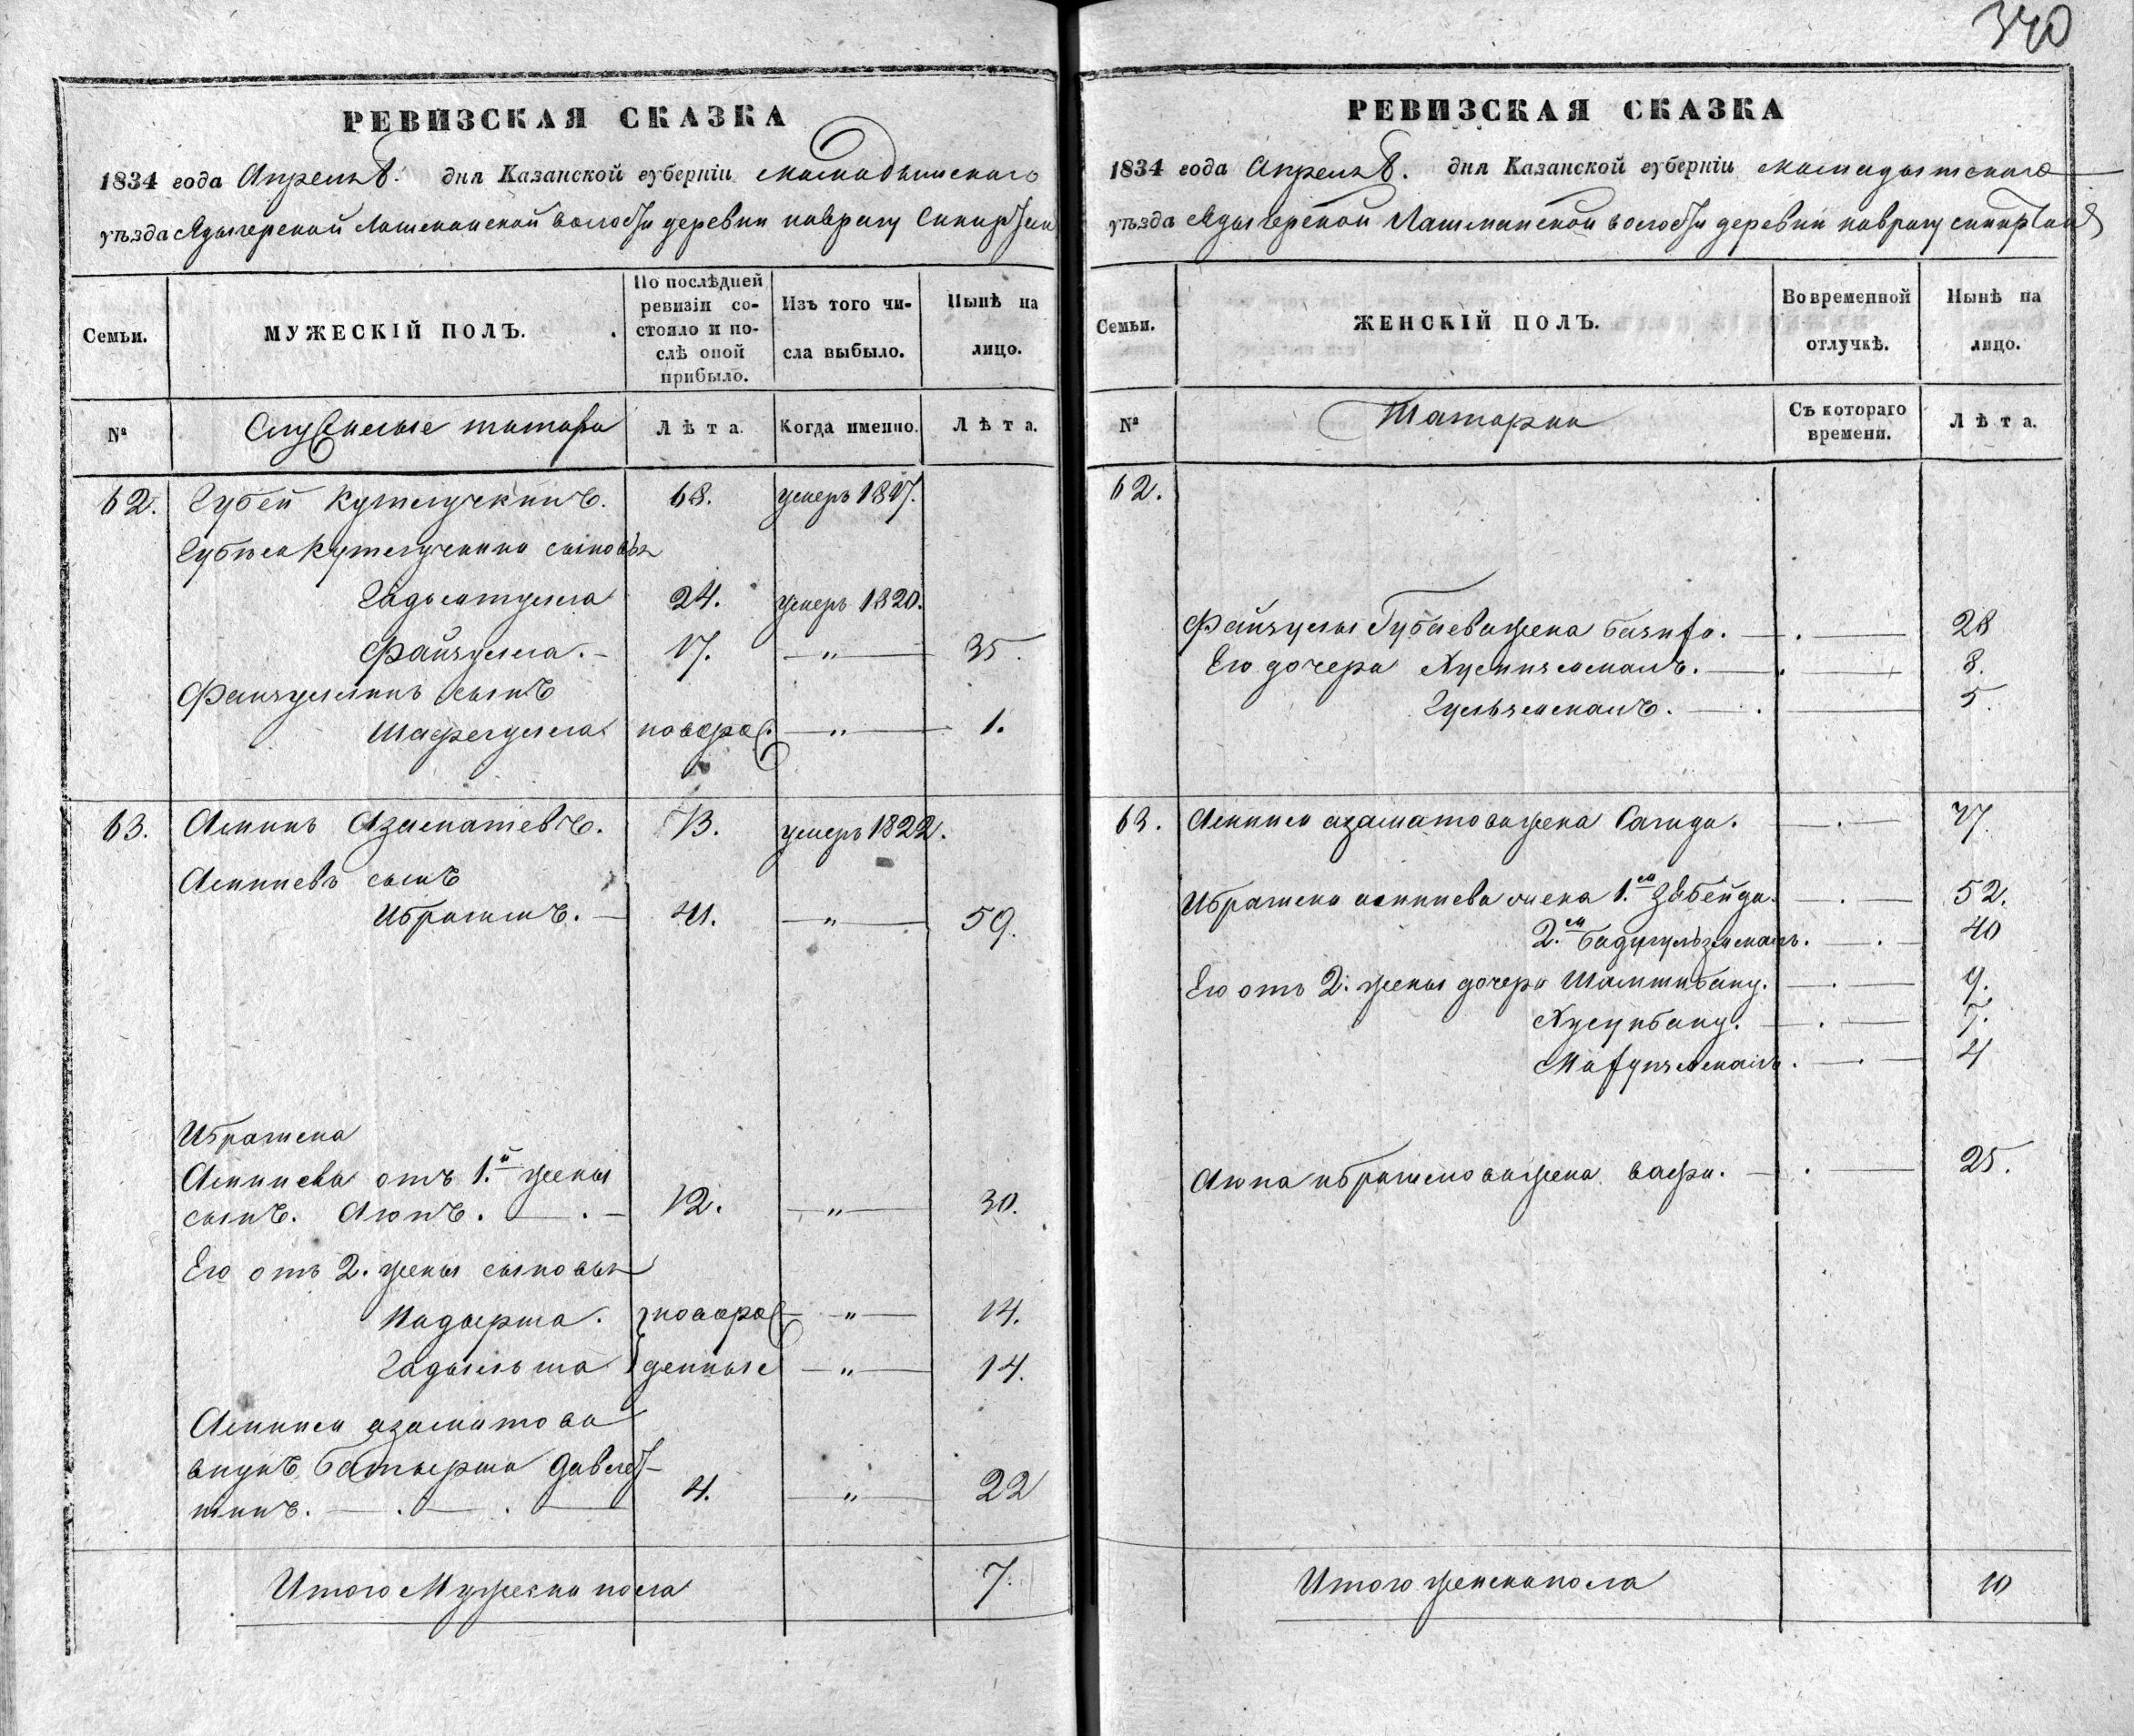 340
РЕВИЗСКАЯ СКАЗКА
1834 года Апреля 8. дня Казанской губерніи Мамадышскаго
уѣзда Адыгерской Лашманской волости деревни
Семьи.
МУЖЕСКІЙ ПОЛЪ.
По послѣдней ревизіи со-
стояло и по-
слѣ оной
прибыло.
Изъ того чи-
сла выбыло.
Нынѣ на
лицо.
№
Служилые татара
Лѣта.
Когда именно.
Лѣта.
62. Губей Кутлучкинъ. 68. умеръ 1817.
Губея Кутлучкина сыновья
24. умеръ 1820.
Файзулла. 17. — " — 35.
Файзуллинъ сынъ
новорож. — " — 1.
63. Аминъ Азаматевъ. 73. умеръ 1822.
Аминевъ сынъ
Ибрагимъ. 41. — " — 59.
Ибрагима
Аминева отъ 1.й жены
сынъ. Аюпъ. 12. — " — 30.
Его отъ 2. жены сыновья
Надырша. новорож — " — 14.
Гадыльша денные — " — 14.
Аминя азаматова
внукъ Батырша Давлет-
шинъ. 4. — " — 22
Итого Мужеска пола 7.
РЕВИЗСКАЯ СКАЗКА
1834 года Апреля 8. дня Казанской губерніи Мамадышскаго
уѣзда Адыгерской Лашманской волости деревни
Семьи.
ЖЕНСКІЙ ПОЛЪ.
Во временной
отлучкѣ.
Нынѣ на
лицо.
№
Татарки
Съ котораго
времени.
Лѣта.
62.
Файзулы Губаева жена 28
Его дочери Хуснизямалъ. 8.
Гульзямалъ. 5.
63. Аминя азаматова жена Сагида. 77.
Ибрагима аминева жена 1.ая Зюбейда. 52.
2.ая 40
Его отъ 2. жены дочери Шамшибану. 9.
Хуснибану. 7.
4
Аюпа ибрагимова жена 25.
Итого женска пола 10